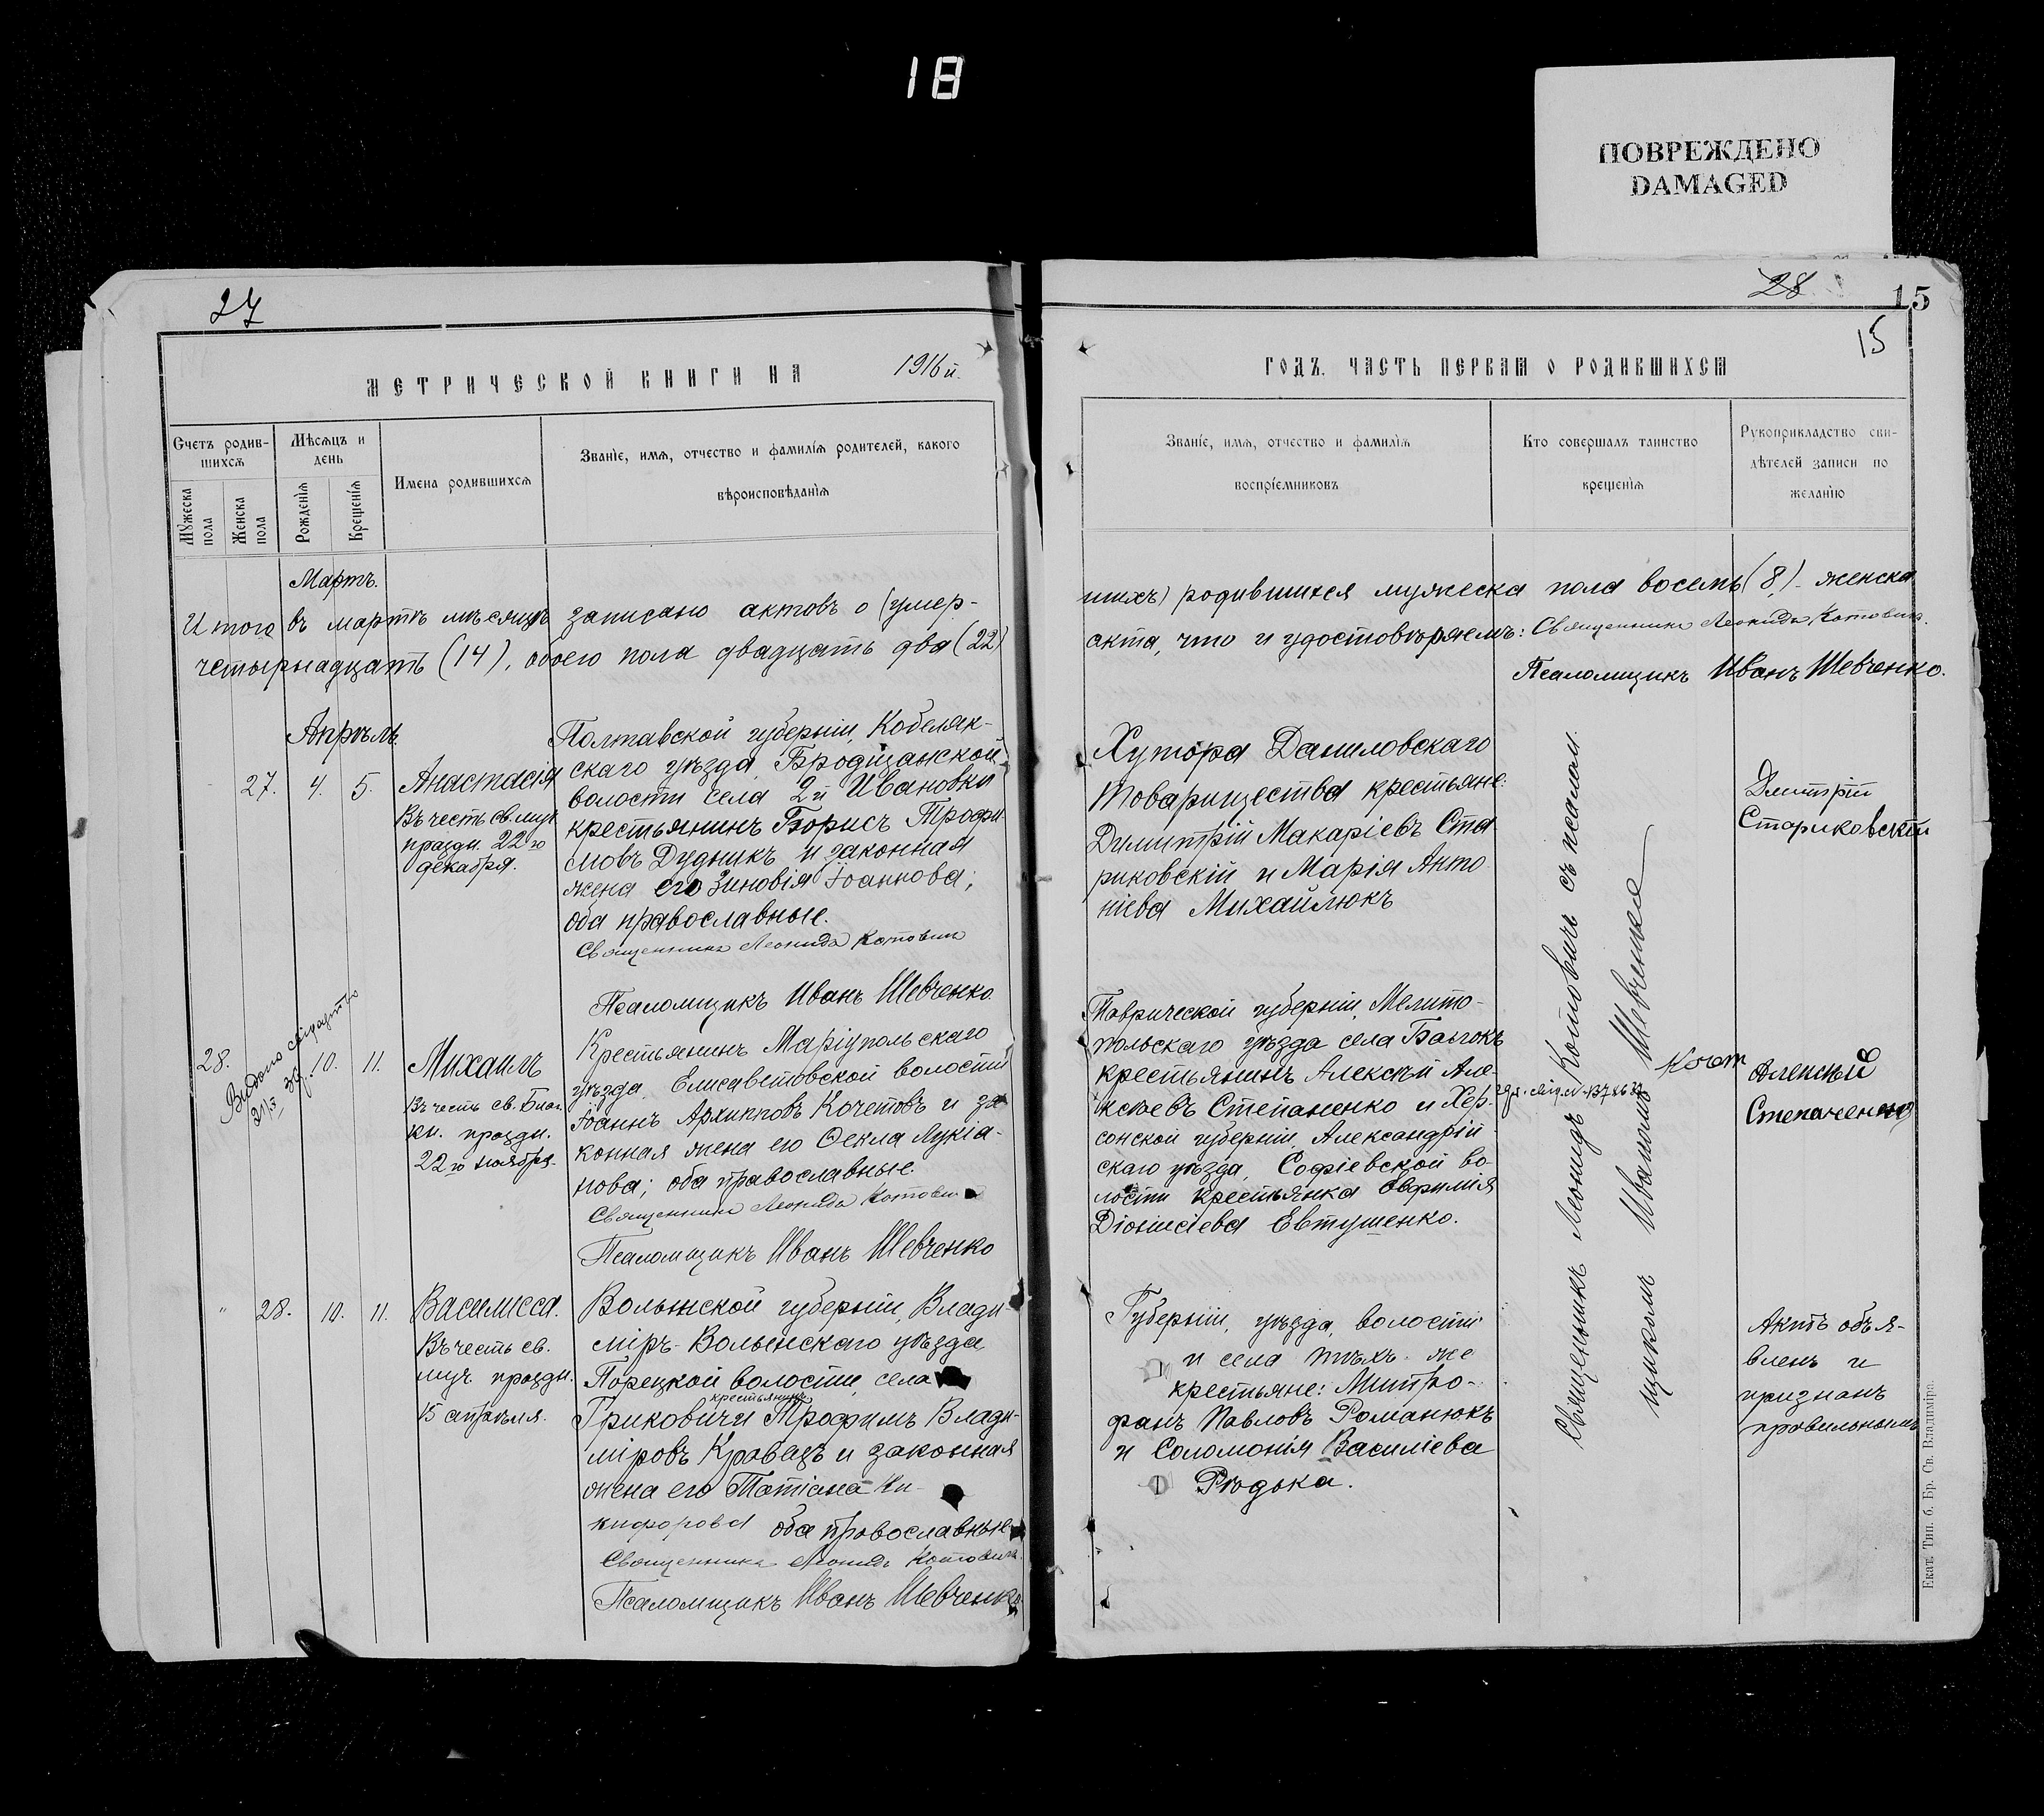 18
ПОВРЕЖДЕНО
DAMAGED
27
МЕТРИЧЕСКОЙ КНИГИ НА 1916 й.
Счетъ родив-
шихся
Мѣсяцъ и
день
Имена родившихся
Званіе, имя, отчество и фамилія родителей, какого
вѣроисповѣданія
Мужеска
пола
Женска
пола
Рожденія
Крещенія
Мартъ.
Итого въ мартѣ мѣсяцѣ записано актовъ о (умер-
четырнадцать (14), обоего пола двадцать два (22)
Апрѣль.
27. 4. 5.
Анастасія
Въ честь св. муч.
праздн. 22го
декабря.
Полтавской губерніи, Кобеляк-
скаго уѣзда, Бродщанской
волости села 2й Ивановки
крестьянинъ Борисъ Трофи-
мовъ Дудникъ и законная
жена его Зиновія Іоаннова;
оба православные.
Священникъ Леонидъ Котовичъ
Псаломщикъ Иванъ Шевченко.
28. 10. 11.
Выдано свідоцтво
Михаилъ
Въ честь св. Благ.
кн. праздн.
22го ноября.
Крестьянинъ Маріупольскаго
уѣзда, Елисаветовской волости
Іоаннъ Архипповъ Кочетовъ и за-
конная жена его Ѳекла Лукіа-
нова; оба православные.
Священникъ Леонидъ Котовичъ
Псаломщикъ Иванъ Шевченко
" 28. 10. 11.
Василисса.
Въ честь св.
муч. праздн.
15 апрѣля.
Волынской губерніи, Влади-
міръ-Волынскаго уѣзда,
Порецкой волости, села
крестьянинъ
Гриковичи Трофимъ Влади-
міровъ Кравецъ и законная
жена его Татіана Ни-
кифорова оба православные
Священникъ Леонидъ Котовичъ.
Псаломщикъ Иванъ Шевченко
28
15
15
ГОДЪ. ЧАСТЬ ПЕРВАЯ О РОДИВШИХСЯ
Званіе, имя, отчество и фамилія
воспріемниковъ
Кто совершалъ таинство
крещенія
Рукоприкладство сви-
дѣтелей записи по
желанію
шихъ) родившихся мужеска пола восемь (8), женска
акта, что и удостовѣряемъ: Священникъ Леонидъ Котовичъ.
Псаломщикъ Иванъ Шевченко.
Хутора Даниловскаго
Товарищества крестьяне:
Димитрій Макаріевъ Ста-
риковскій и Марія Анто-
ніева Михайлюкъ
Дмитрій
Стариковскій
Таврической губерніи, Мелито-
польскаго уѣзда села Балокъ
крестьянинъ Алексѣй Але-
ксѣевъ Степаненко и Хер-
сонской губерніи, Александрій-
скаго уѣзда, Софіевской во-
лости крестьянка Евфимія
Діонисіева Евтушенко.
Алексѣй
Степаненко
Губерніи, уѣзда, волости
и села тѣхъ же
крестьяне: Митро-
фанъ Павловъ Романюкъ
и Соломонія Василіева
Рѣдька.
Священникъ Леонидъ Котовичъ съ псалом-
щикомъ Иваномъ Шевченко
Актъ объя-
вленъ и
признанъ
правильнымъ
Екат. Тип. б. Бр. Св. Владиміра.